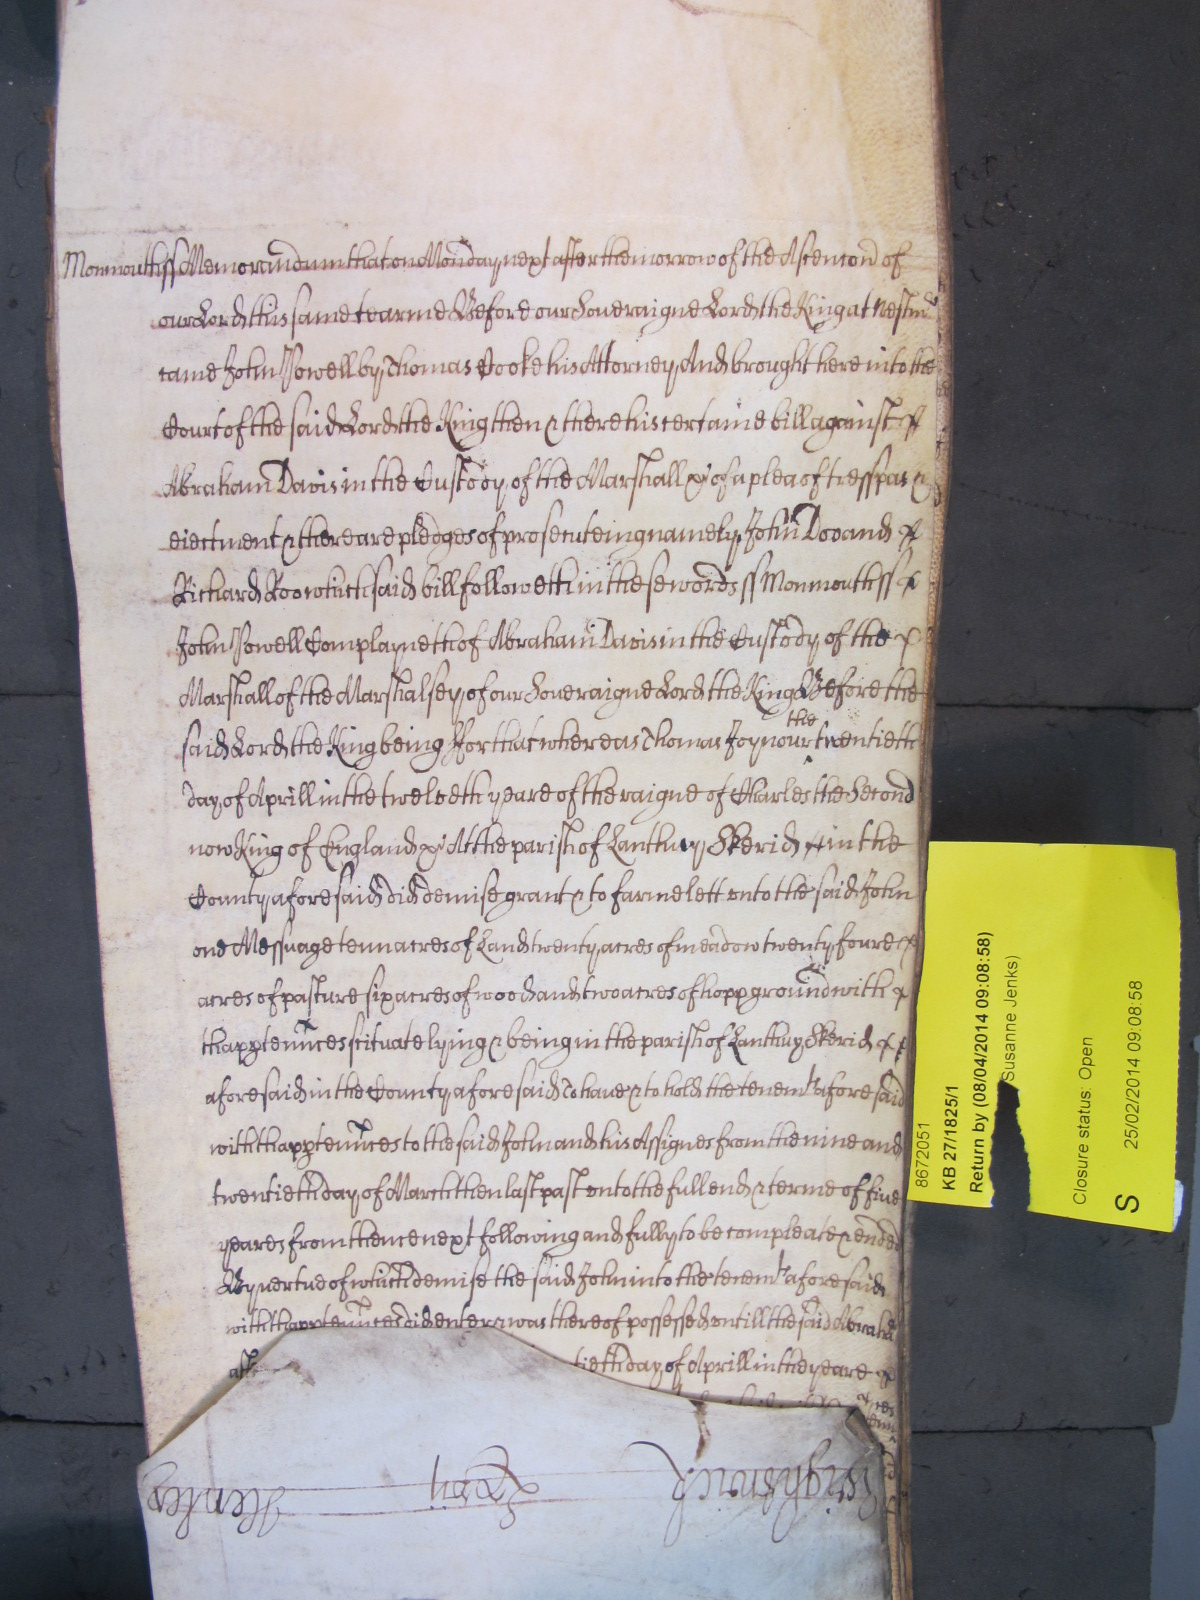 Monmouth ss Memorandum that on Monday next after the morrow of the Asencon of
our Lord this same tearme Before our Soveraigne Lord the King at Westmr
came John Powell by Thomas Cooke his Attorney And brought here into the
Court of the said Lord the King then & there his certaine bill against
Abraham Davis in the Custody of the Marshall &c of a plea of tresspas &
eiectment & there are pledges of prosecuteing namely John Doo and
Richard Roo which said bill followeth in these words ss Monmouth ss
John Powell Complayneth of Abraham Davis in the Custody of the
Marshall of the Marshalsey of our Soveraigne Lord the King Before the
said Lord the King being For that whereas Thomas Joynour the twentieth
day of Aprill in the twelveth yeare of the raigne of Charles the Second
now King of England &c At the parish of Lanthuy Skerid in the
County aforesaid did demise grant & to farme lett unto the said John
one Messuage tenn acres of Land twenty acres of meadow twenty foure
acres of pasture six acres of wood and two acres of hopp ground with
thapptennces scituate lying & being in the parish of Lanthuy Skerid
aforesaid in the County aforesaid To have & to hold the tenemts aforesaid
with thapptennces to the said John and his Assignes from the nine and
twentieth day of March then last past unto the full end & terme of five
yeares from thence next following and fully to be compleate & ended
By vertue of which demise the said John into the tenemts aforesaid
with thapptennces did enter & was thereof possessed untill the said Abraha
tieth day of Aprill in the yeare
8672051
KB 27/1825/1
Return by (08/04/2014 09:08:58)
Susanne Jenks)
Closure status: Open
S
25/02/2014 09:08:58